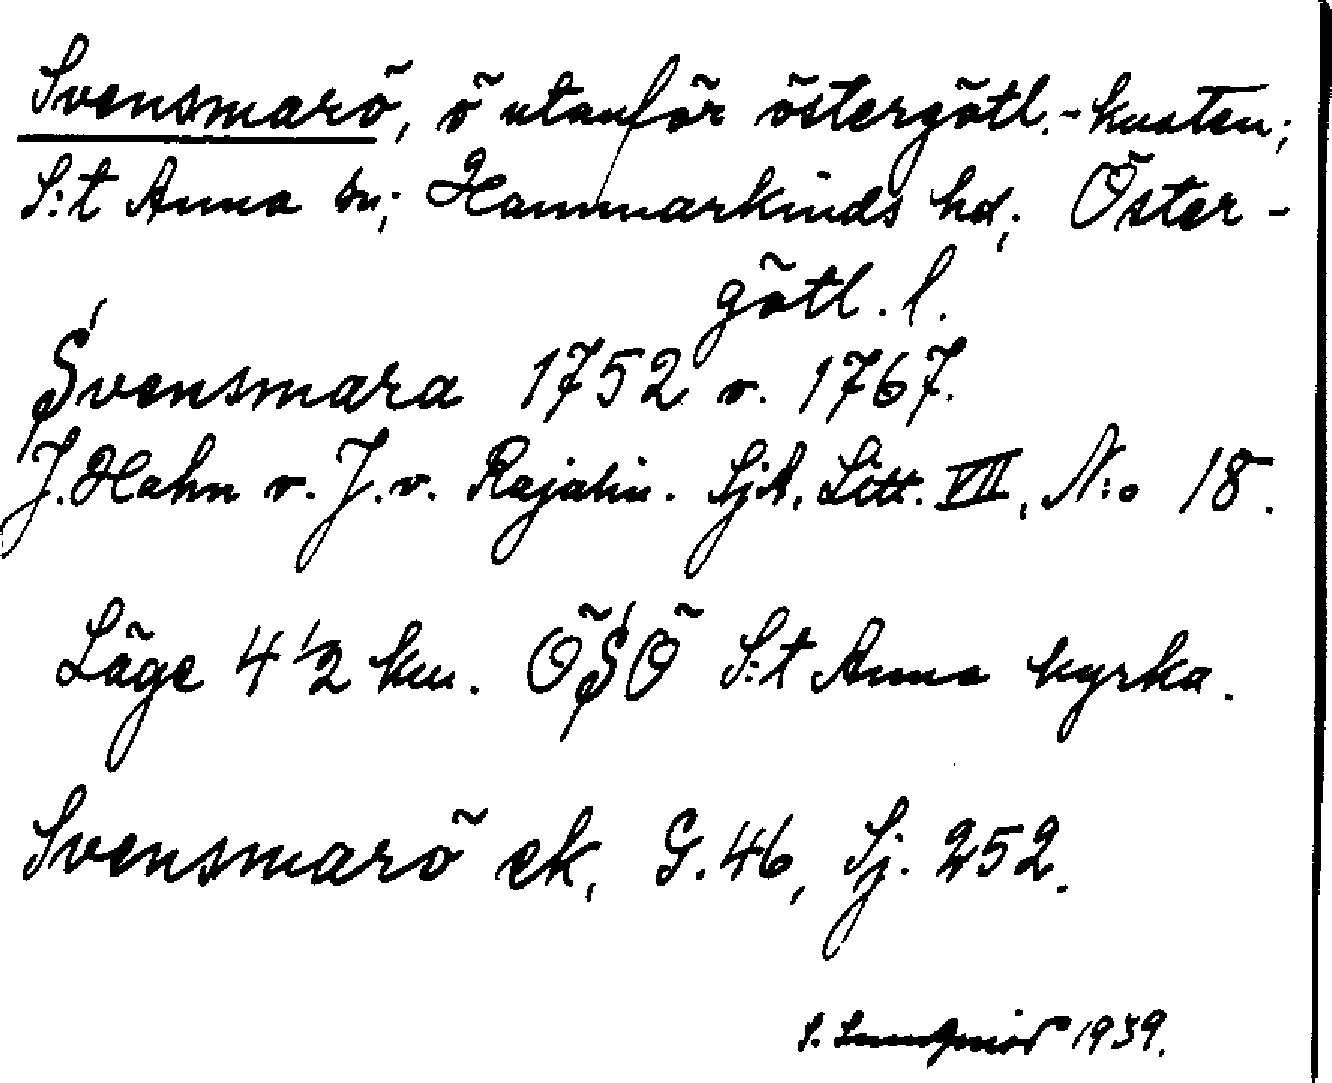 Svensmarö, ö utanför östergötl.-kusten;
S:t Anna sn; Hammarkinds hd; Öster-
götl. l.
Svensmara 1752 o. 1767.
J. Hahn o. J. v. Rajalin. SjA. Litt. VII, N:o 18.
Läge 4 1/2 km. ÖSÖ S:t Anna kyrka.
Svensmarö ek, G. 46, Sj. 252.
S. Lundqvist 1939.